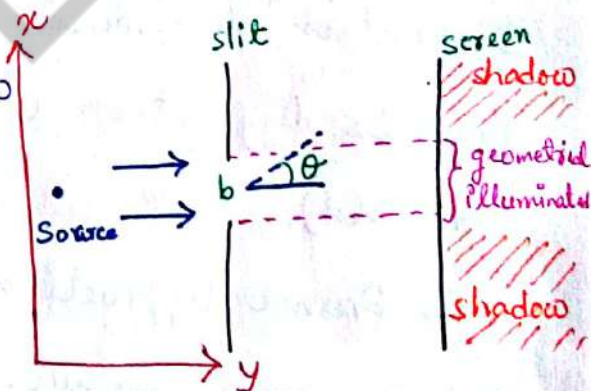 x
slit
screen
shadow
θ
b
geometrical
illuminated
Source
shadow
y